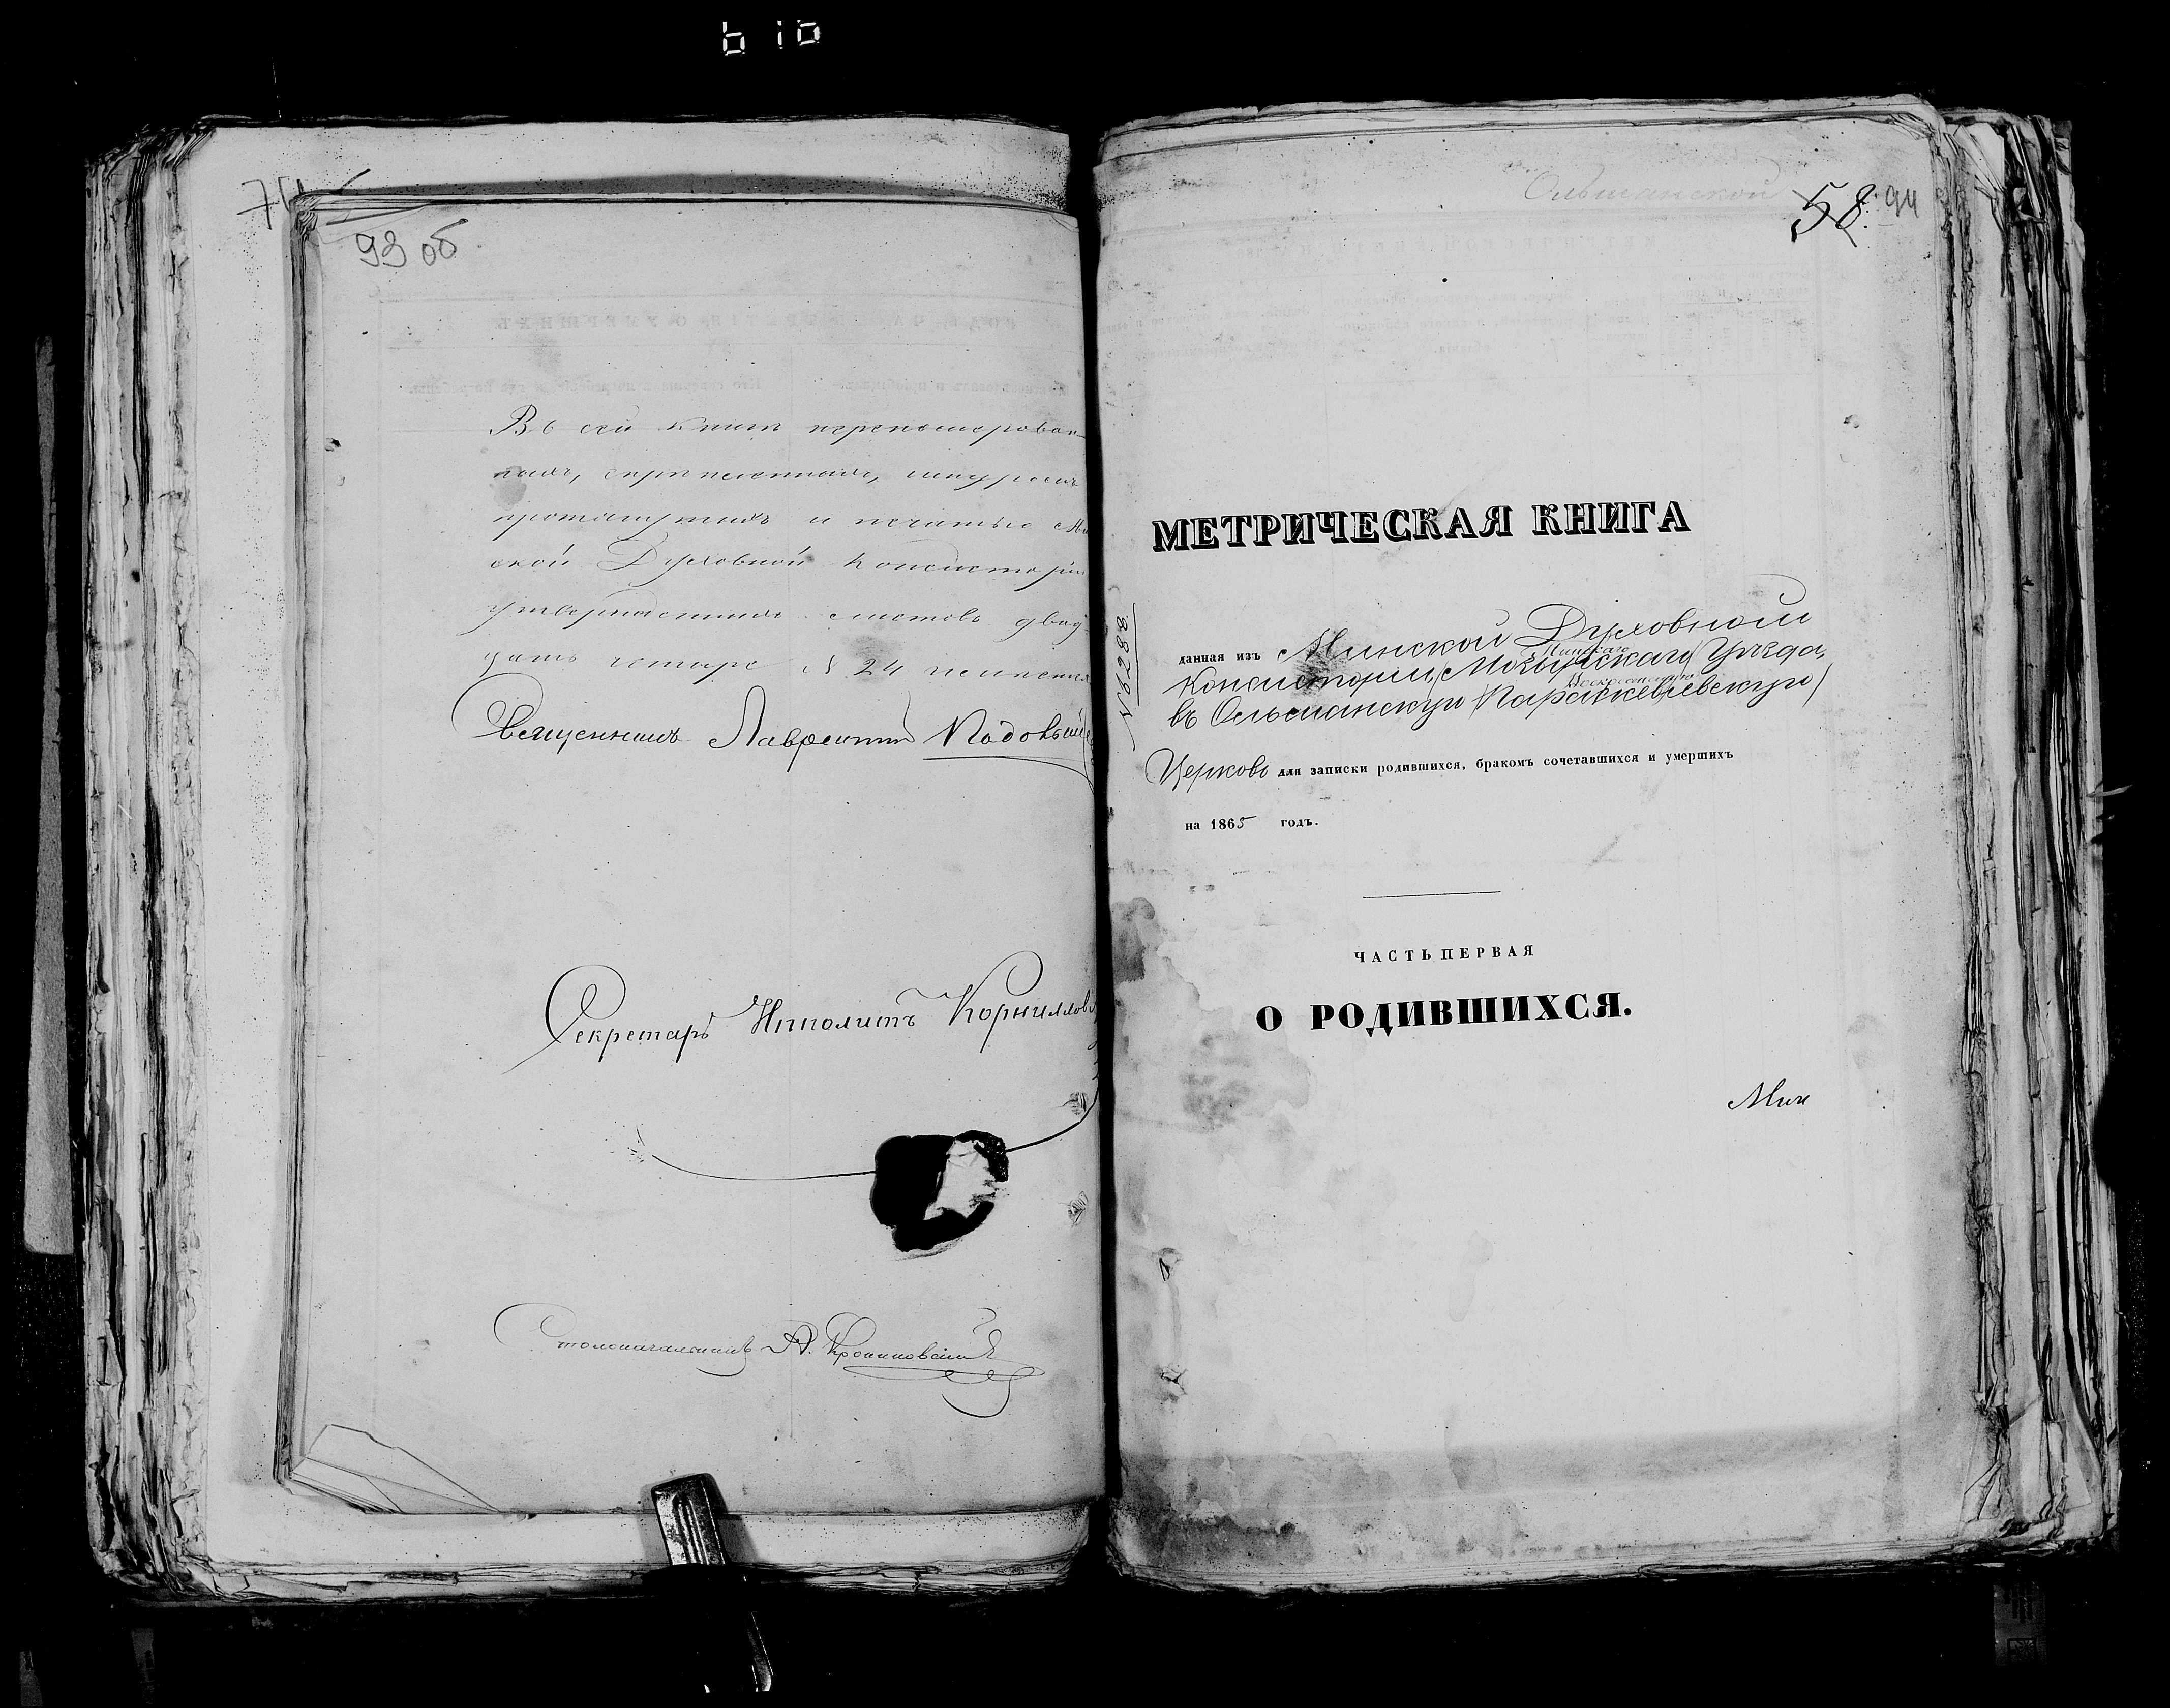 93 об
Въ сей книгѣ перенумерован-
ныхъ, скрѣпленныхъ, шнуромъ
протянутыхъ и печатью Ми
ской Духовной Консисторіи
утвержденныхъ листовъ двад-
цать четыре № 24
Священникъ Лаврентій
Секретарь Ипполитъ Корнилов
Столоначальникъ А.
Ольшанской
58. 94
МЕТРИЧЕСКАЯ КНИГА
№ 6288.
данная изъ Минской Духовной
Пинскаго
Консисторіи (Мозырскаго) Уѣзда,
Воскресенскую
въ Ольшанскую (Параскевіевскую)
Церковь для записки родившихся, бракомъ сочетавшихся и умершихъ
на 1865 годъ.
ЧАСТЬ ПЕРВАЯ
О РОДИВШИХСЯ.
Мин